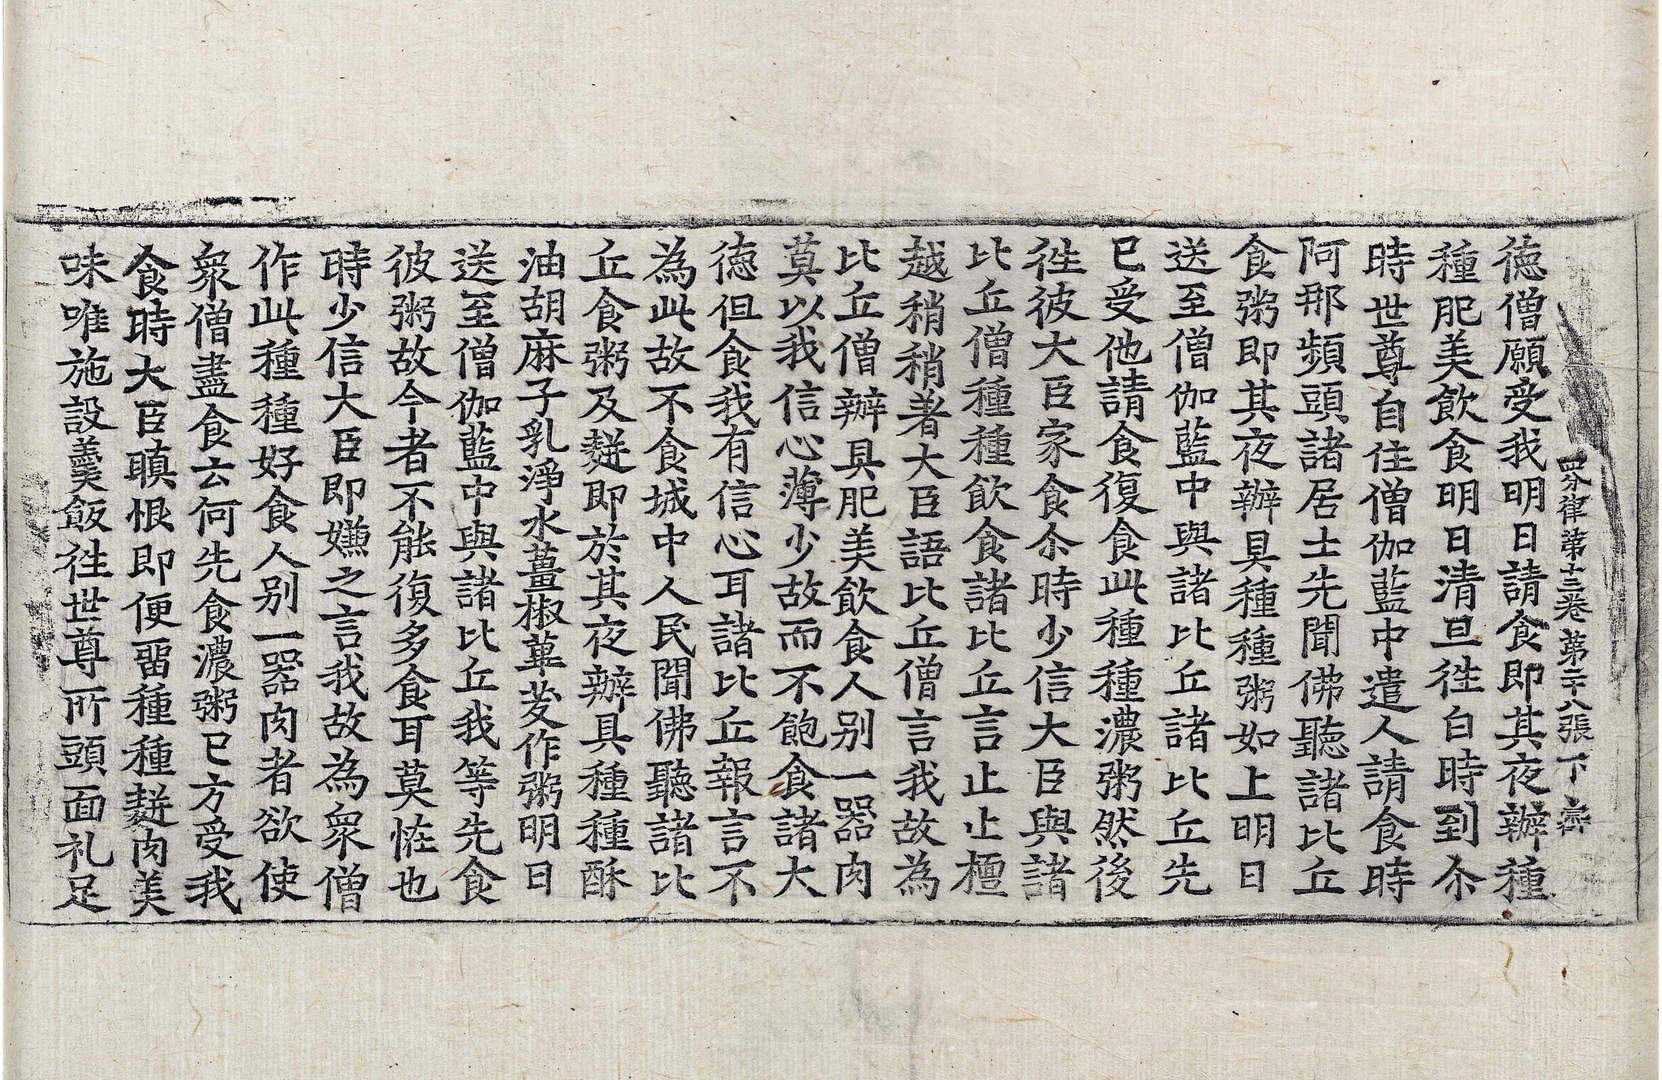 四分律第十三卷 第二十八張 下 齊
德僧願受我明日請食即其夜辦種
種肥美飲食明日清旦徃白時到尒
時世尊自住僧伽藍中遣人請食時
阿那頻頭諸居士先聞佛聽諸比丘
食粥即其夜辦具種種粥如上明日
送至僧伽藍中與諸比丘諸比丘先
已受他請食復食此種種濃粥然後
徃彼大臣家食尒時少信大臣與諸
比丘僧種種飲食諸比丘言止止檀
越稍稍著大臣語比丘僧言我故為
比丘僧辦具肥美飲食人别一器肉
莫以我信心薄少故而不飽食諸大
德但食我有信心耳諸比丘報言不
為此故不食城中人民聞佛聽諸比
丘食粥及麨即於其夜辦具種種酥
油胡麻子乳淨水薑椒蓽茇作粥明日
送至僧伽藍中與諸比丘我等先食
彼粥故今者不能復多食耳莫恠也
時少信大臣即嫌之言我故為衆僧
作此種種好食人别一器肉者欲使
衆僧盡食云何先食濃粥已方受我
食時大臣瞋恨即便留種種麨肉美
味唯施設羹飯徃世尊所頭面礼足